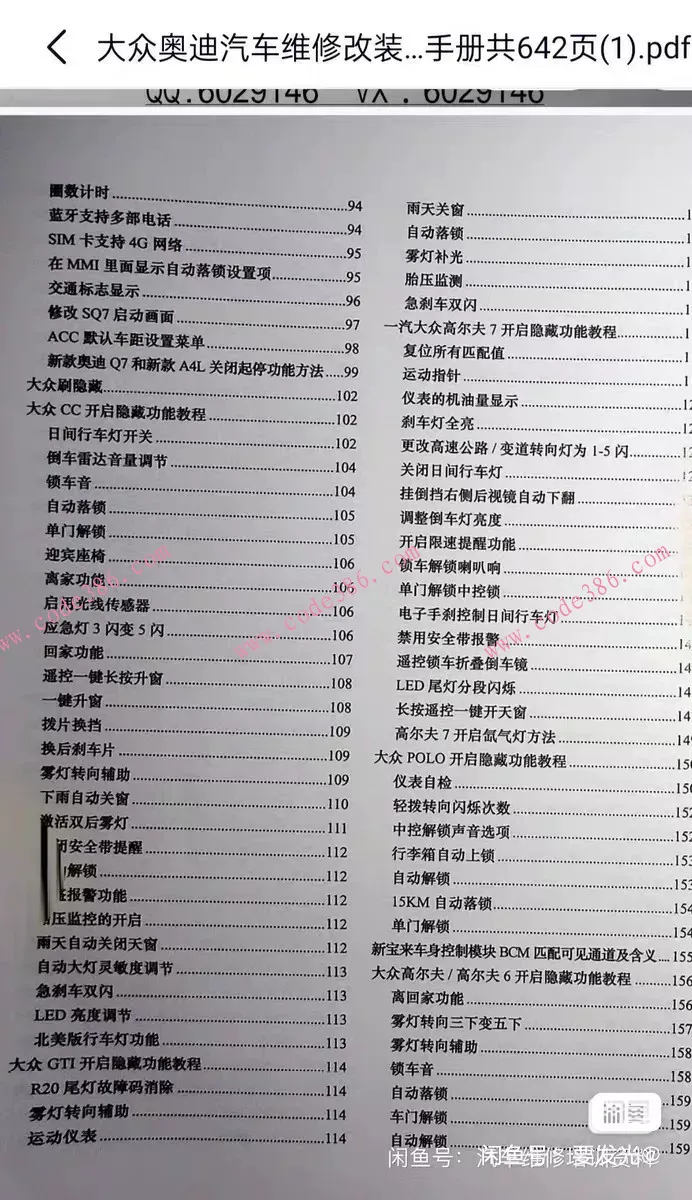 大众奥迪汽车维修改装...手册共642页(1).pdf
QQ:6029146 VX:6029146
圈数计时 94
蓝牙支持多部电话 94
SIM 卡支持 4G 网络 95
在 MMI 里面显示自动落锁设置项 95
交通标志显示 96
修改 SQ7 启动画面 97
ACC 默认车距设置菜单 98
新款奥迪 Q7 和新款 A4L 关闭起停功能方法 99
大众刷隐藏 102
大众 CC 开启隐藏功能教程 102
日间行车灯开关 102
倒车雷达音量调节 104
锁车音 104
自动落锁 105
单门解锁 105
迎宾座椅 106
离家功能 106
启用光线传感器 106
应急灯 3 闪变 5 闪 106
回家功能 107
遥控一键长按升窗 108
一键升窗 108
拨片换挡 109
换后刹车片 109
雾灯转向辅助 109
下雨自动关窗 110
激活双后雾灯 111
闭安全带提醒 112
解锁 112
报警功能 112
压监控的开启 112
雨天自动关闭天窗 112
自动大灯灵敏度调节 113
急刹车双闪 113
LED 亮度调节 113
北美版行车灯功能 113
大众 GTI 开启隐藏功能教程 114
R20 尾灯故障码消除 114
雾灯转向辅助 114
运动仪表 114
雨天关窗
自动落锁
雾灯补光
胎压监测
急刹车双闪
一汽大众高尔夫 7 开启隐藏功能教程
复位所有匹配值
运动指针
仪表的机油量显示
刹车灯全亮
更改高速公路 / 变道转向灯为 1-5 闪
关闭日间行车灯
挂倒挡右侧后视镜自动下翻
调整倒车灯亮度
开启限速提醒功能
锁车解锁喇叭响
单门解锁中控锁
电子手刹控制日间行车灯
禁用安全带报警
遥控锁车折叠倒车镜
LED 尾灯分段闪烁
长按遥控一键开天窗
高尔夫 7 开启氙气灯方法 149
大众 POLO 开启隐藏功能教程 150
仪表自检 150
轻拨转向闪烁次数 152
中控解锁声音选项 152
行李箱自动上锁 153
自动解锁 153
15KM 自动落锁 154
单门解锁 154
新宝来车身控制模块 BCM 匹配可见通道及含义 155
大众高尔夫 / 高尔夫 6 开启隐藏功能教程 156
离回家功能 156
雾灯转向三下变五下 157
雾灯转向辅助 158
锁车音 158
自动落锁 159
车门解锁 159
自动解锁 159
www.code386.com
www.code386.com
www.code386.com